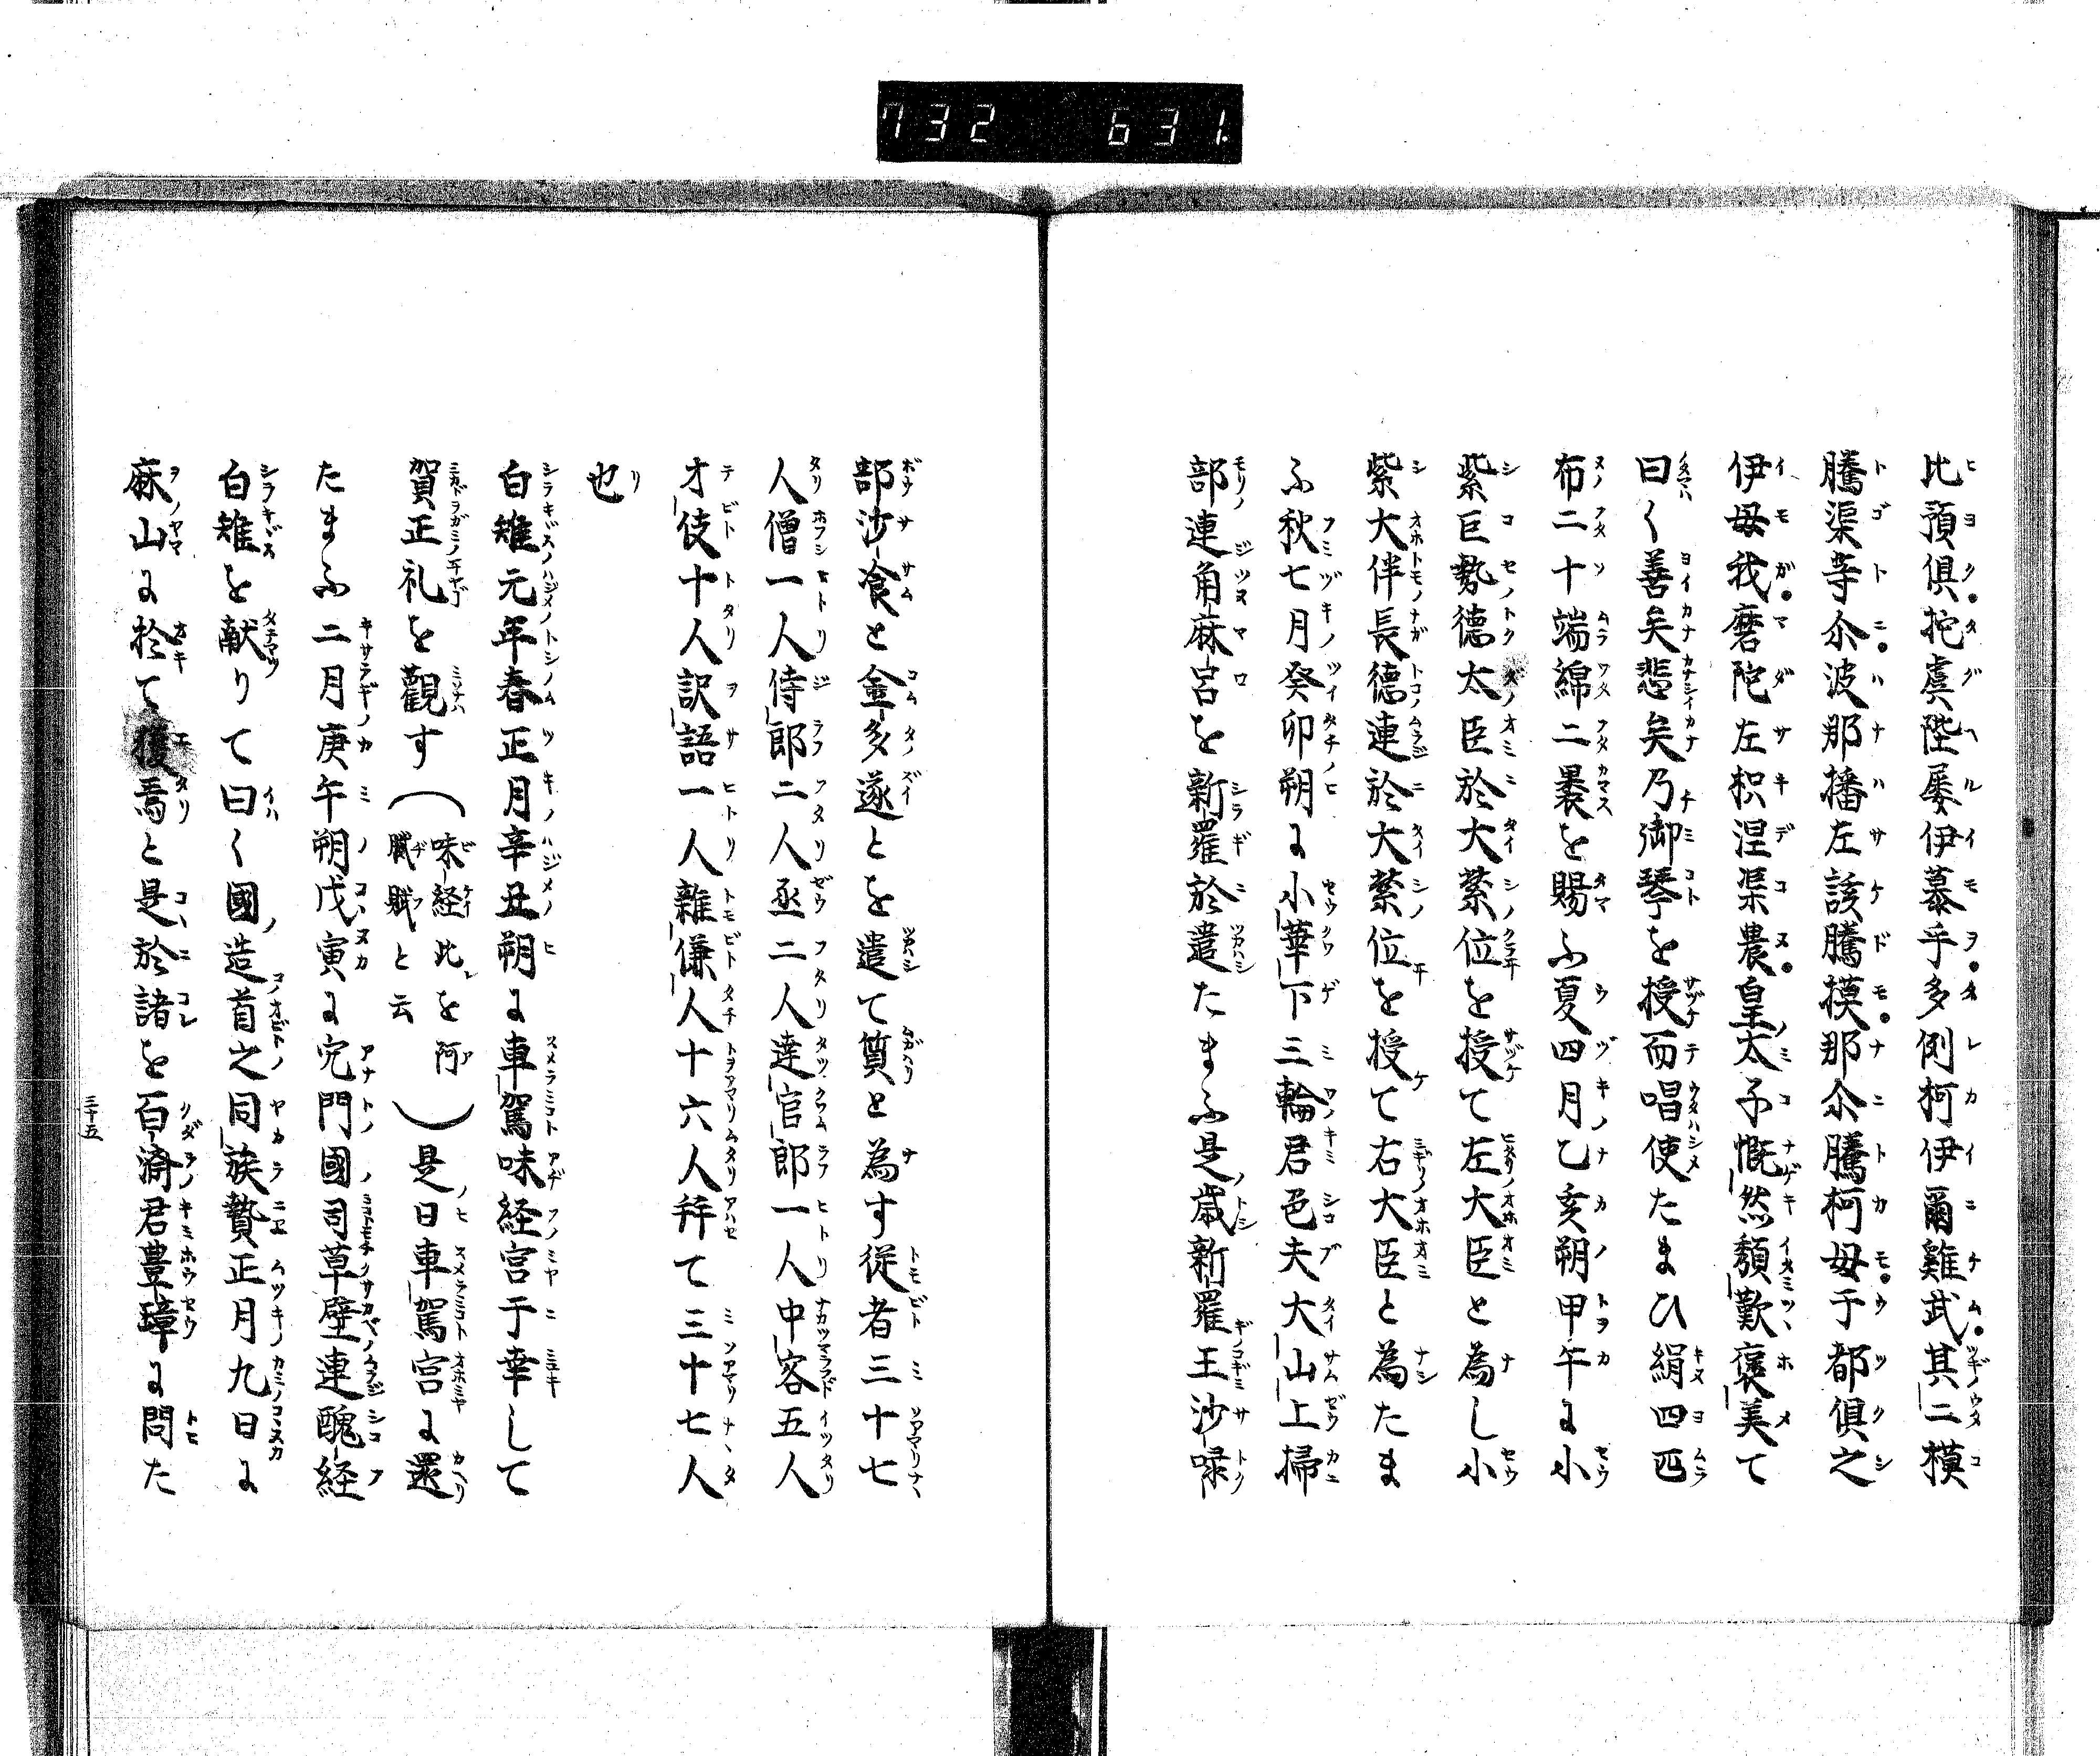 732 631.
比預俱拕虞陛屡伊慕乎多例柯伊爾雞武其二模
騰渠等尒波那播左該騰摸那尒騰柯母于都倶之
伊母我磨陀左枳涅渠農皇太子慨然頽歎褒美て
曰く善矣悲矣乃御琴を授而唱使たまひ絹四匹
布二十端綿二褁を賜ふ夏四月乙亥朔甲午に小
紫巨勢德太臣於大紫位を授て左大臣と為し小
紫大伴長德連於大紫位を授て右大臣と為たま
ふ秋七月癸卯朔に小華下三輪君色夫大山上掃
部連角麻呂を新羅於遣たまふ是歳新羅王沙㖨
部沙飡と金多遂とを遣て質と為す従者三十七
人僧一人侍郎二人丞二人達官郎一人中客五人
才伎十人訳語一人雜傔人十六人幷て三十七人
也
白雉元年春正月辛丑朔に車駕味経宮于幸して
賀正礼を觀す（味経比を阿膩賦と云）是日車駕宮に還
たまふ二月庚午朔戊寅に宍門國司草壁連醜経
白雉を献りて曰く國造首之同族贄正月九日に
麻山に於て獲焉と是於諸を百濟君豊璋に問た
三十五